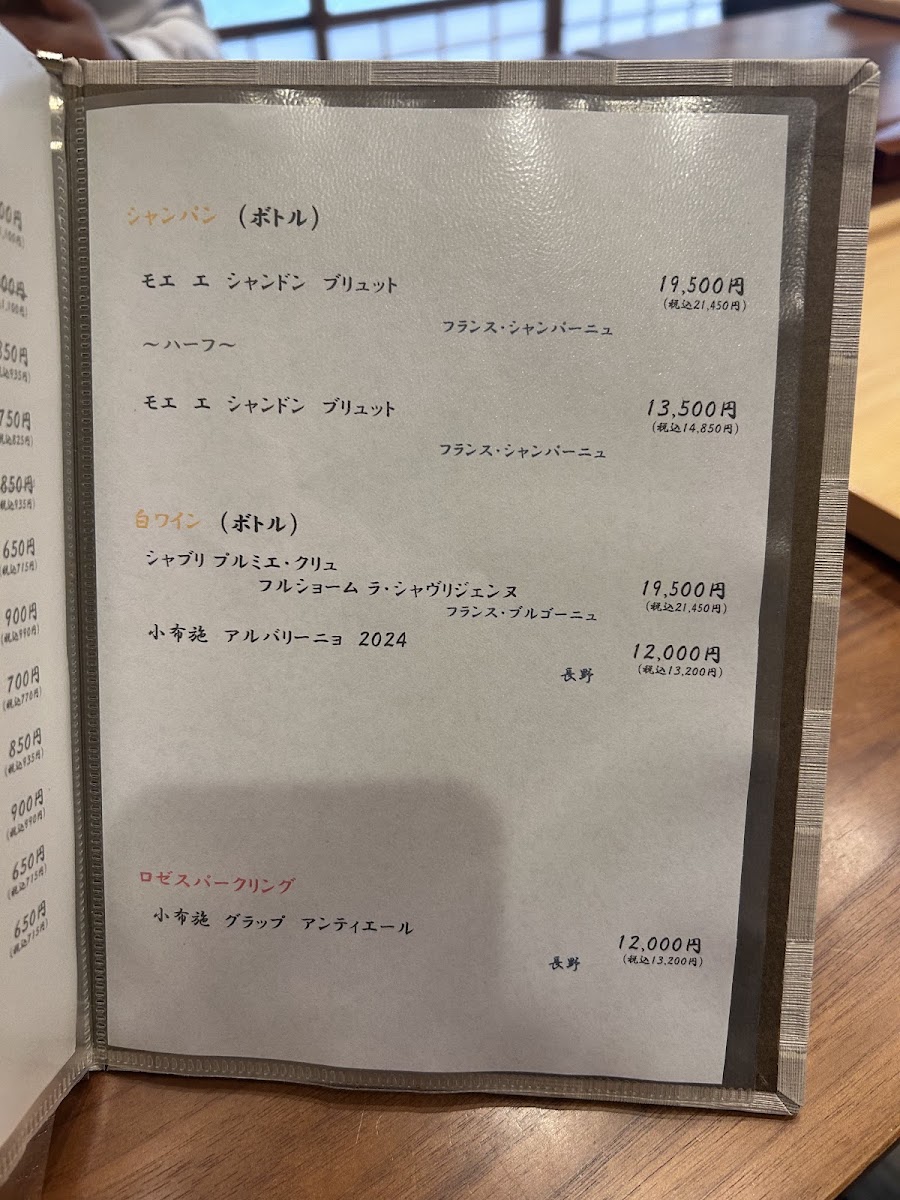 00円
1,100円)
00円
1,100円)
850円
税込935円)
750円
税込825円)
850円
税込935円)
650円
(税込715円)
900円
(税込990円)
700円
(税込770円)
850円
(税込935円)
900円
(税込990円)
650円
(税込715円)
650円
(税込715円)
シャンパン (ボトル)
モエ エ シャンドン ブリュット 19,500円
(税込21,450円)
フランス・シャンパーニュ
～ハーフ～
モエ エ シャンドン ブリュット 13,500円
(税込14,850円)
フランス・シャンパーニュ
白ワイン (ボトル)
シャブリ プルミエ・クリュ
フルショーム ラ・シャヴリジェンヌ 19,500円
(税込21,450円)
フランス・ブルゴーニュ
小布施 アルバリーニョ 2024 12,000円
長野 (税込13,200円)
ロゼスパークリング
小布施 グラップ アンティエール 12,000円
長野 (税込13,200円)